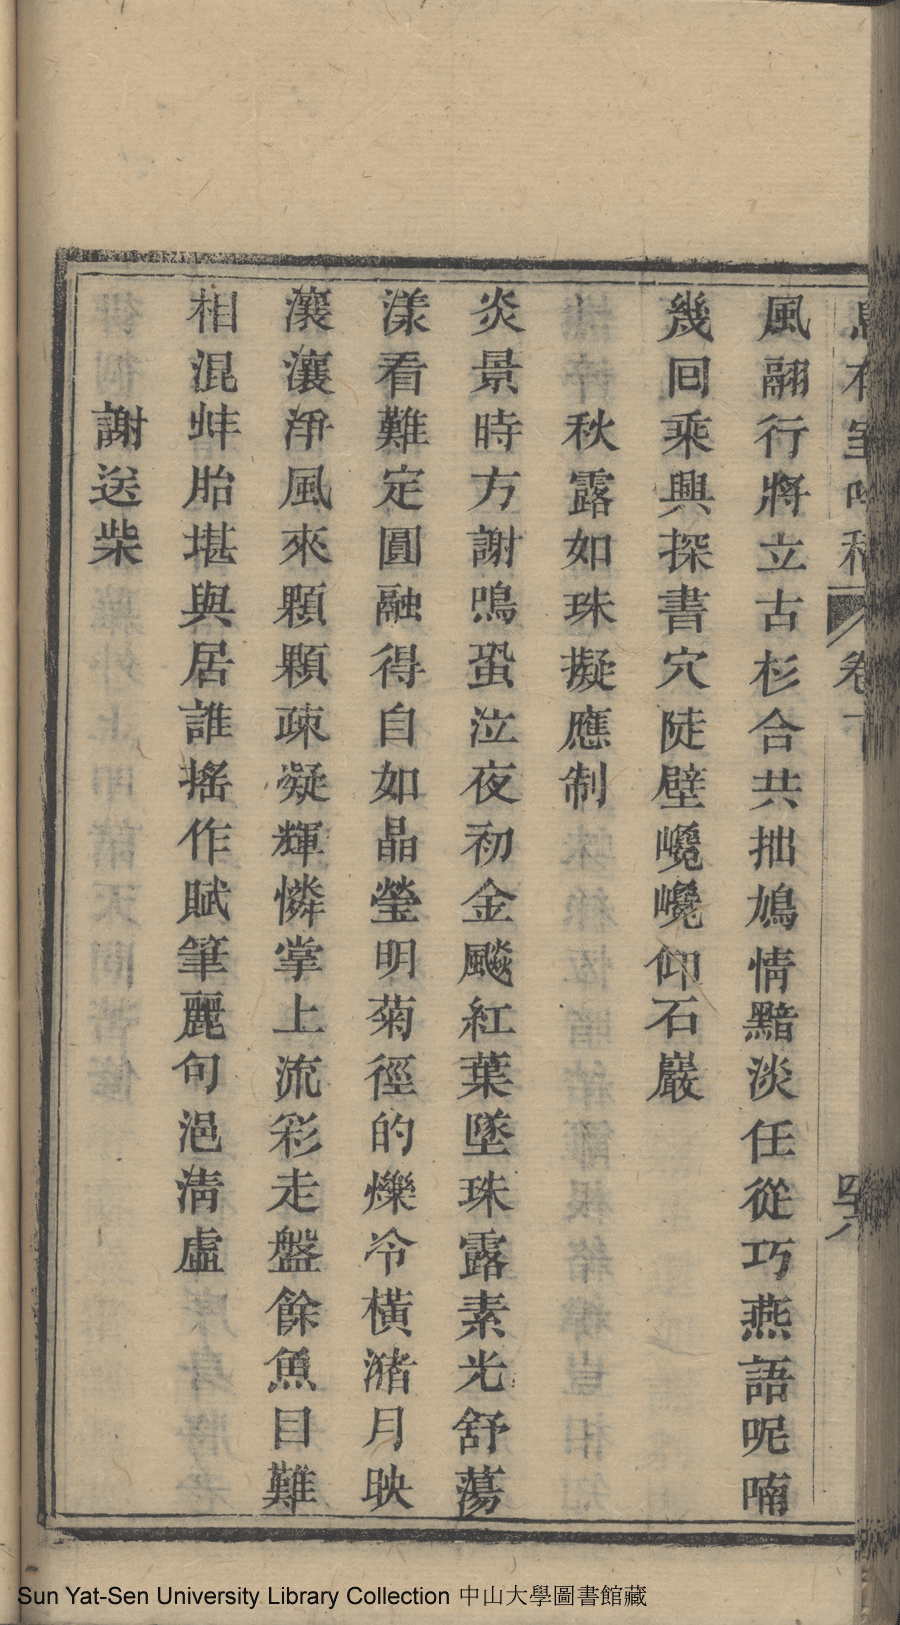 卷下
風翮行將立古杉合共拙鳩情黯淡任從巧燕語呢喃
幾回乘興探書穴陡壁巉巉仰石巖
秋露如珠擬應制
炎景時方謝鳴蛩泣夜初金飈紅葉墜珠露素光舒蕩
漾看難定圓融得自如晶瑩明菊徑的爍冷橫瀦月映
瀼瀼淨風來顆顆疎凝輝憐掌上流彩走盤餘魚目難
相混蚌胎堪與居誰搖作賦筆麗句浥淸虛
謝送柴
Sun Yat-Sen University Library Collection 中山大學圖書館藏